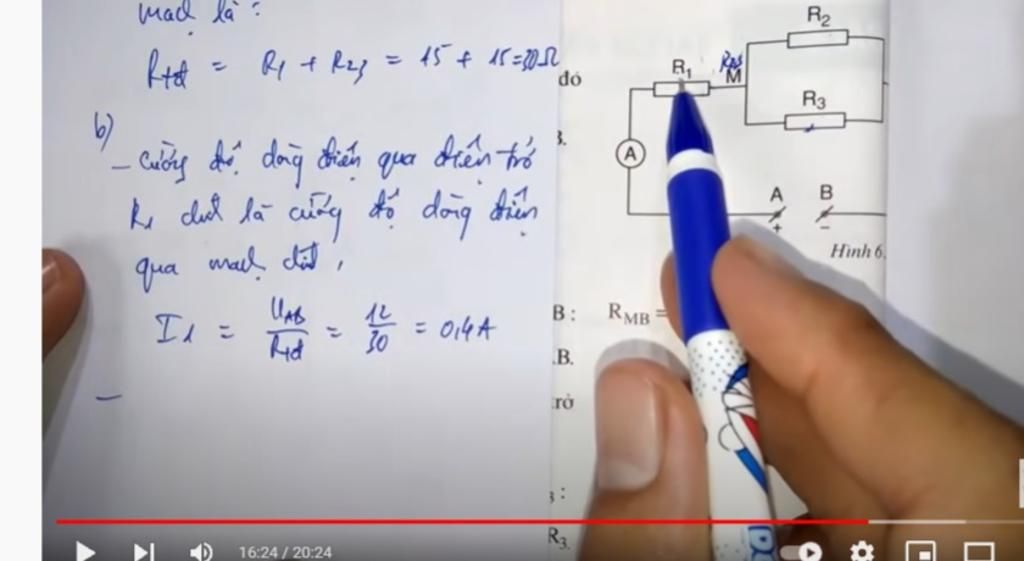 mạch là :
Rtđ = R1 + R23 = 15 + 15 = 30 Ω
b)
- cường độ dòng điện qua điện trở
R1 chính là cường độ dòng điện
qua mạch chính,
I1 = UAB / Rtđ = 12 / 30 = 0,4 A
-
đó
B :
RMB =
.B.
trở
:
R3.
R2
R1
R23
M
R3
A
A
B
+
-
Hình 6.
16:24 / 20:24